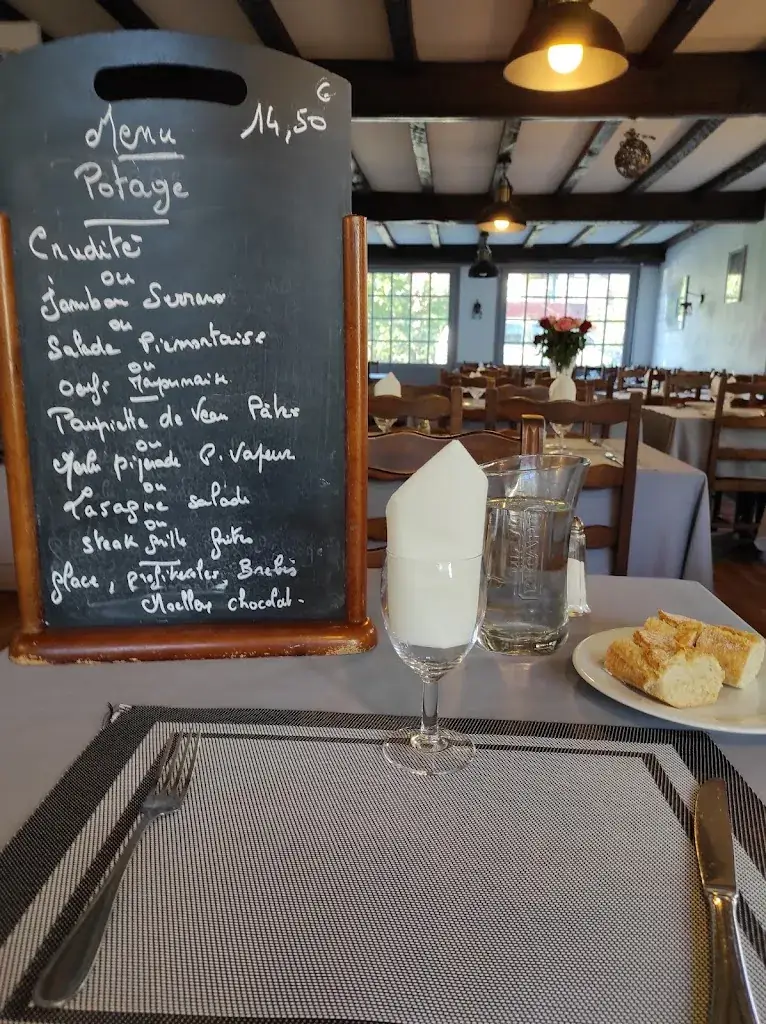 Menu 14,50 €
Potage
Crudité
ou
Jambon Serrano
ou
Salade Piemontaise
ou
oeufs Mayonnaise
Paupiette de Veau Pâtes
ou
Merlu piperade P. Vapeur
ou
Lasagne salade
ou
steak grillé frites
glace, profiteroles, Brebis
Moelleux chocolat.